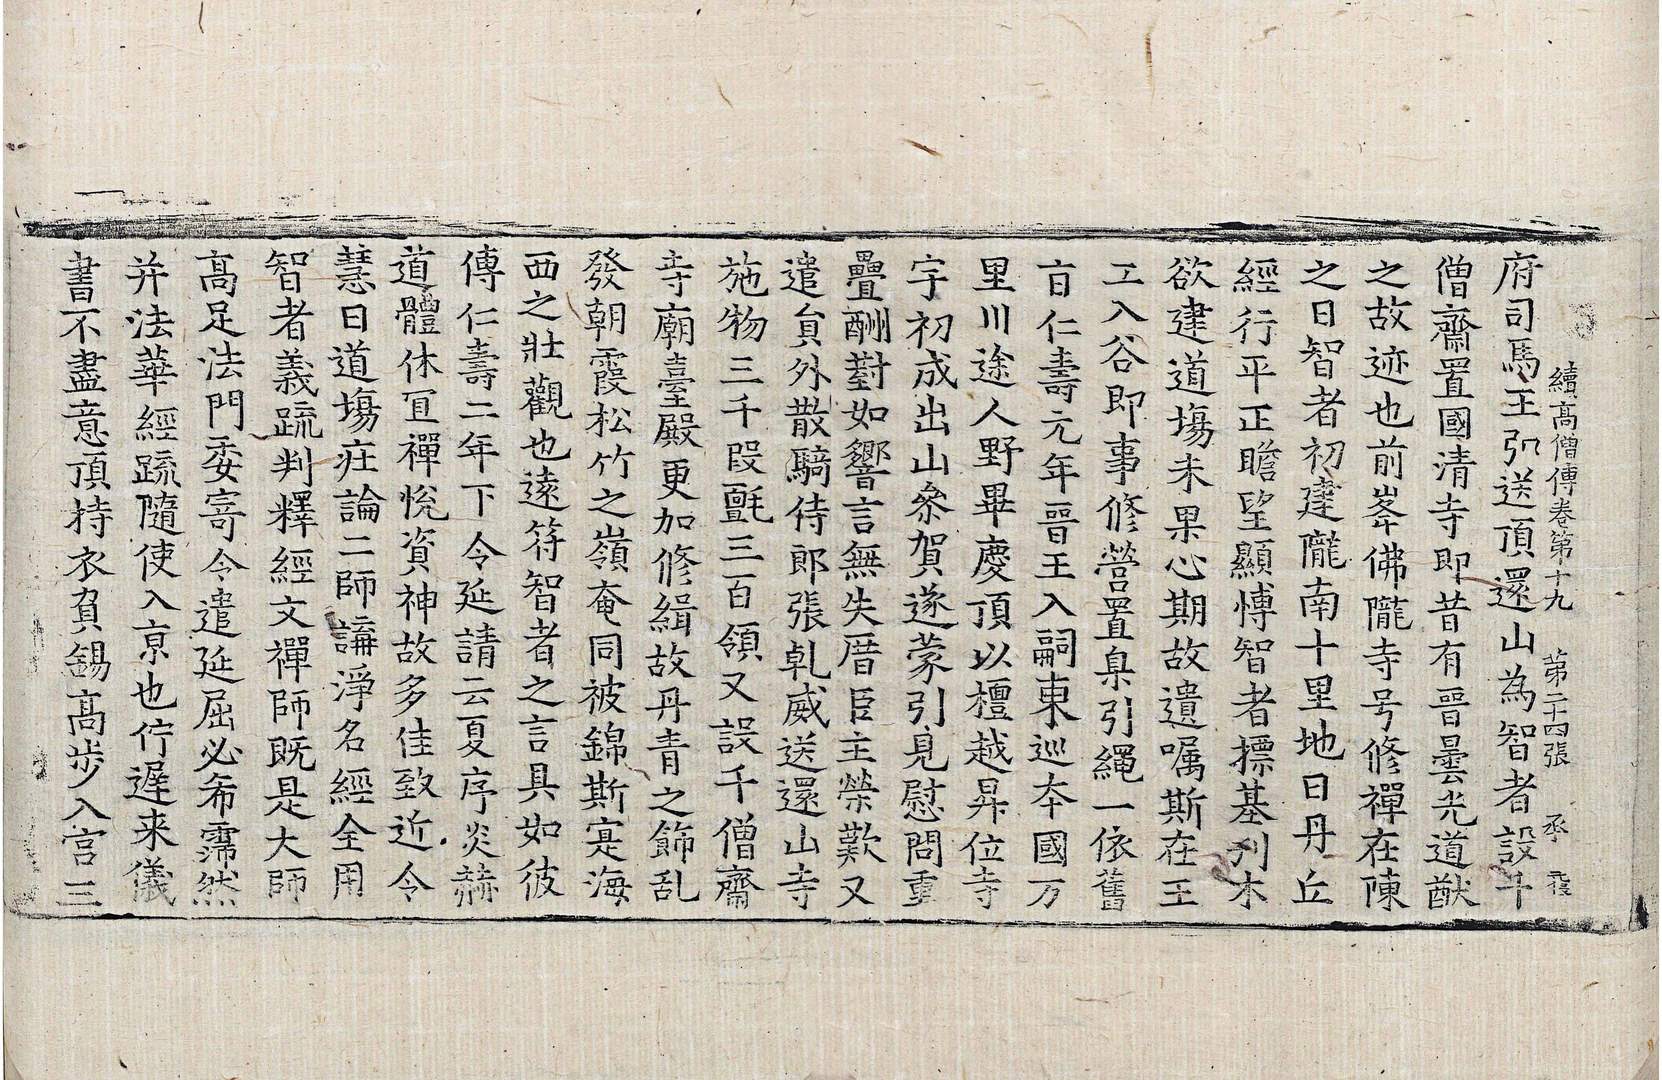 續高僧傳卷第十九 第二十四張 承
府司馬王弘送頂還山為智者設千
僧齋置國清寺即昔有晉曇光道猷
之故迹也前峯佛隴寺号修禪在陳
之日智者初建隴南十里地曰丹丘
經行平正瞻望顯博智者摽基刋木
欲建道場未果心期故遺嘱斯在王
工入谷即事修營置臬引繩一依舊
旨仁壽元年晉王入嗣東巡夲國万
里川途人野畢慶頂以檀越昇位寺
宇初成出山叅賀遂蒙引見慰問重
疊酬對如響言無失厝臣主榮歎又
遣貟外散騎侍郎張乹威送還山寺
施物三千段氈三百領又設千僧齋
寺廟臺殿更加修緝故丹青之飾乱
發朝霞松竹之嶺奄同被錦斯寔海
西之壯觀也遠符智者之言具如彼
傳仁壽二年下令延請云夏序炎赫
道體休宜禪悅資神故多佳致近令
慧日道場莊論二師講淨名經全用
智者義䟽判釋經文禪師既是大師
高足法門委寄令遣延屈必希霈然
并法華經䟽隨使入京也佇遲来儀
書不盡意頂持衣負錫高步入宫三